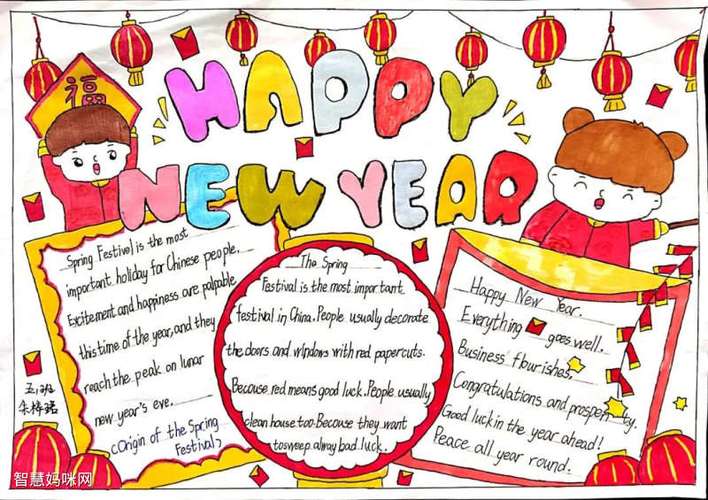 福
HAPPY
NEW YEAR
Spring Festivel is the most
important holiday for Chinese people.
Excitement and happiness are palpable
this time of the year, and they
reach the peak on lunar
new year's eve.
<Origin of the Spring
Festival>
The Spring
Festival is the most important
festival in China. People usually decorate
the doors and windows with red papercuts.
Because red means good luck. People usually
clean house too. Because they want
to sweep alway bad luck.
Happy New Year.
Everything goes well.
Business flourishes,
Congratulations and prosperity.
Good luck in the year ahead!
Peace all year round.
智慧妈咪网